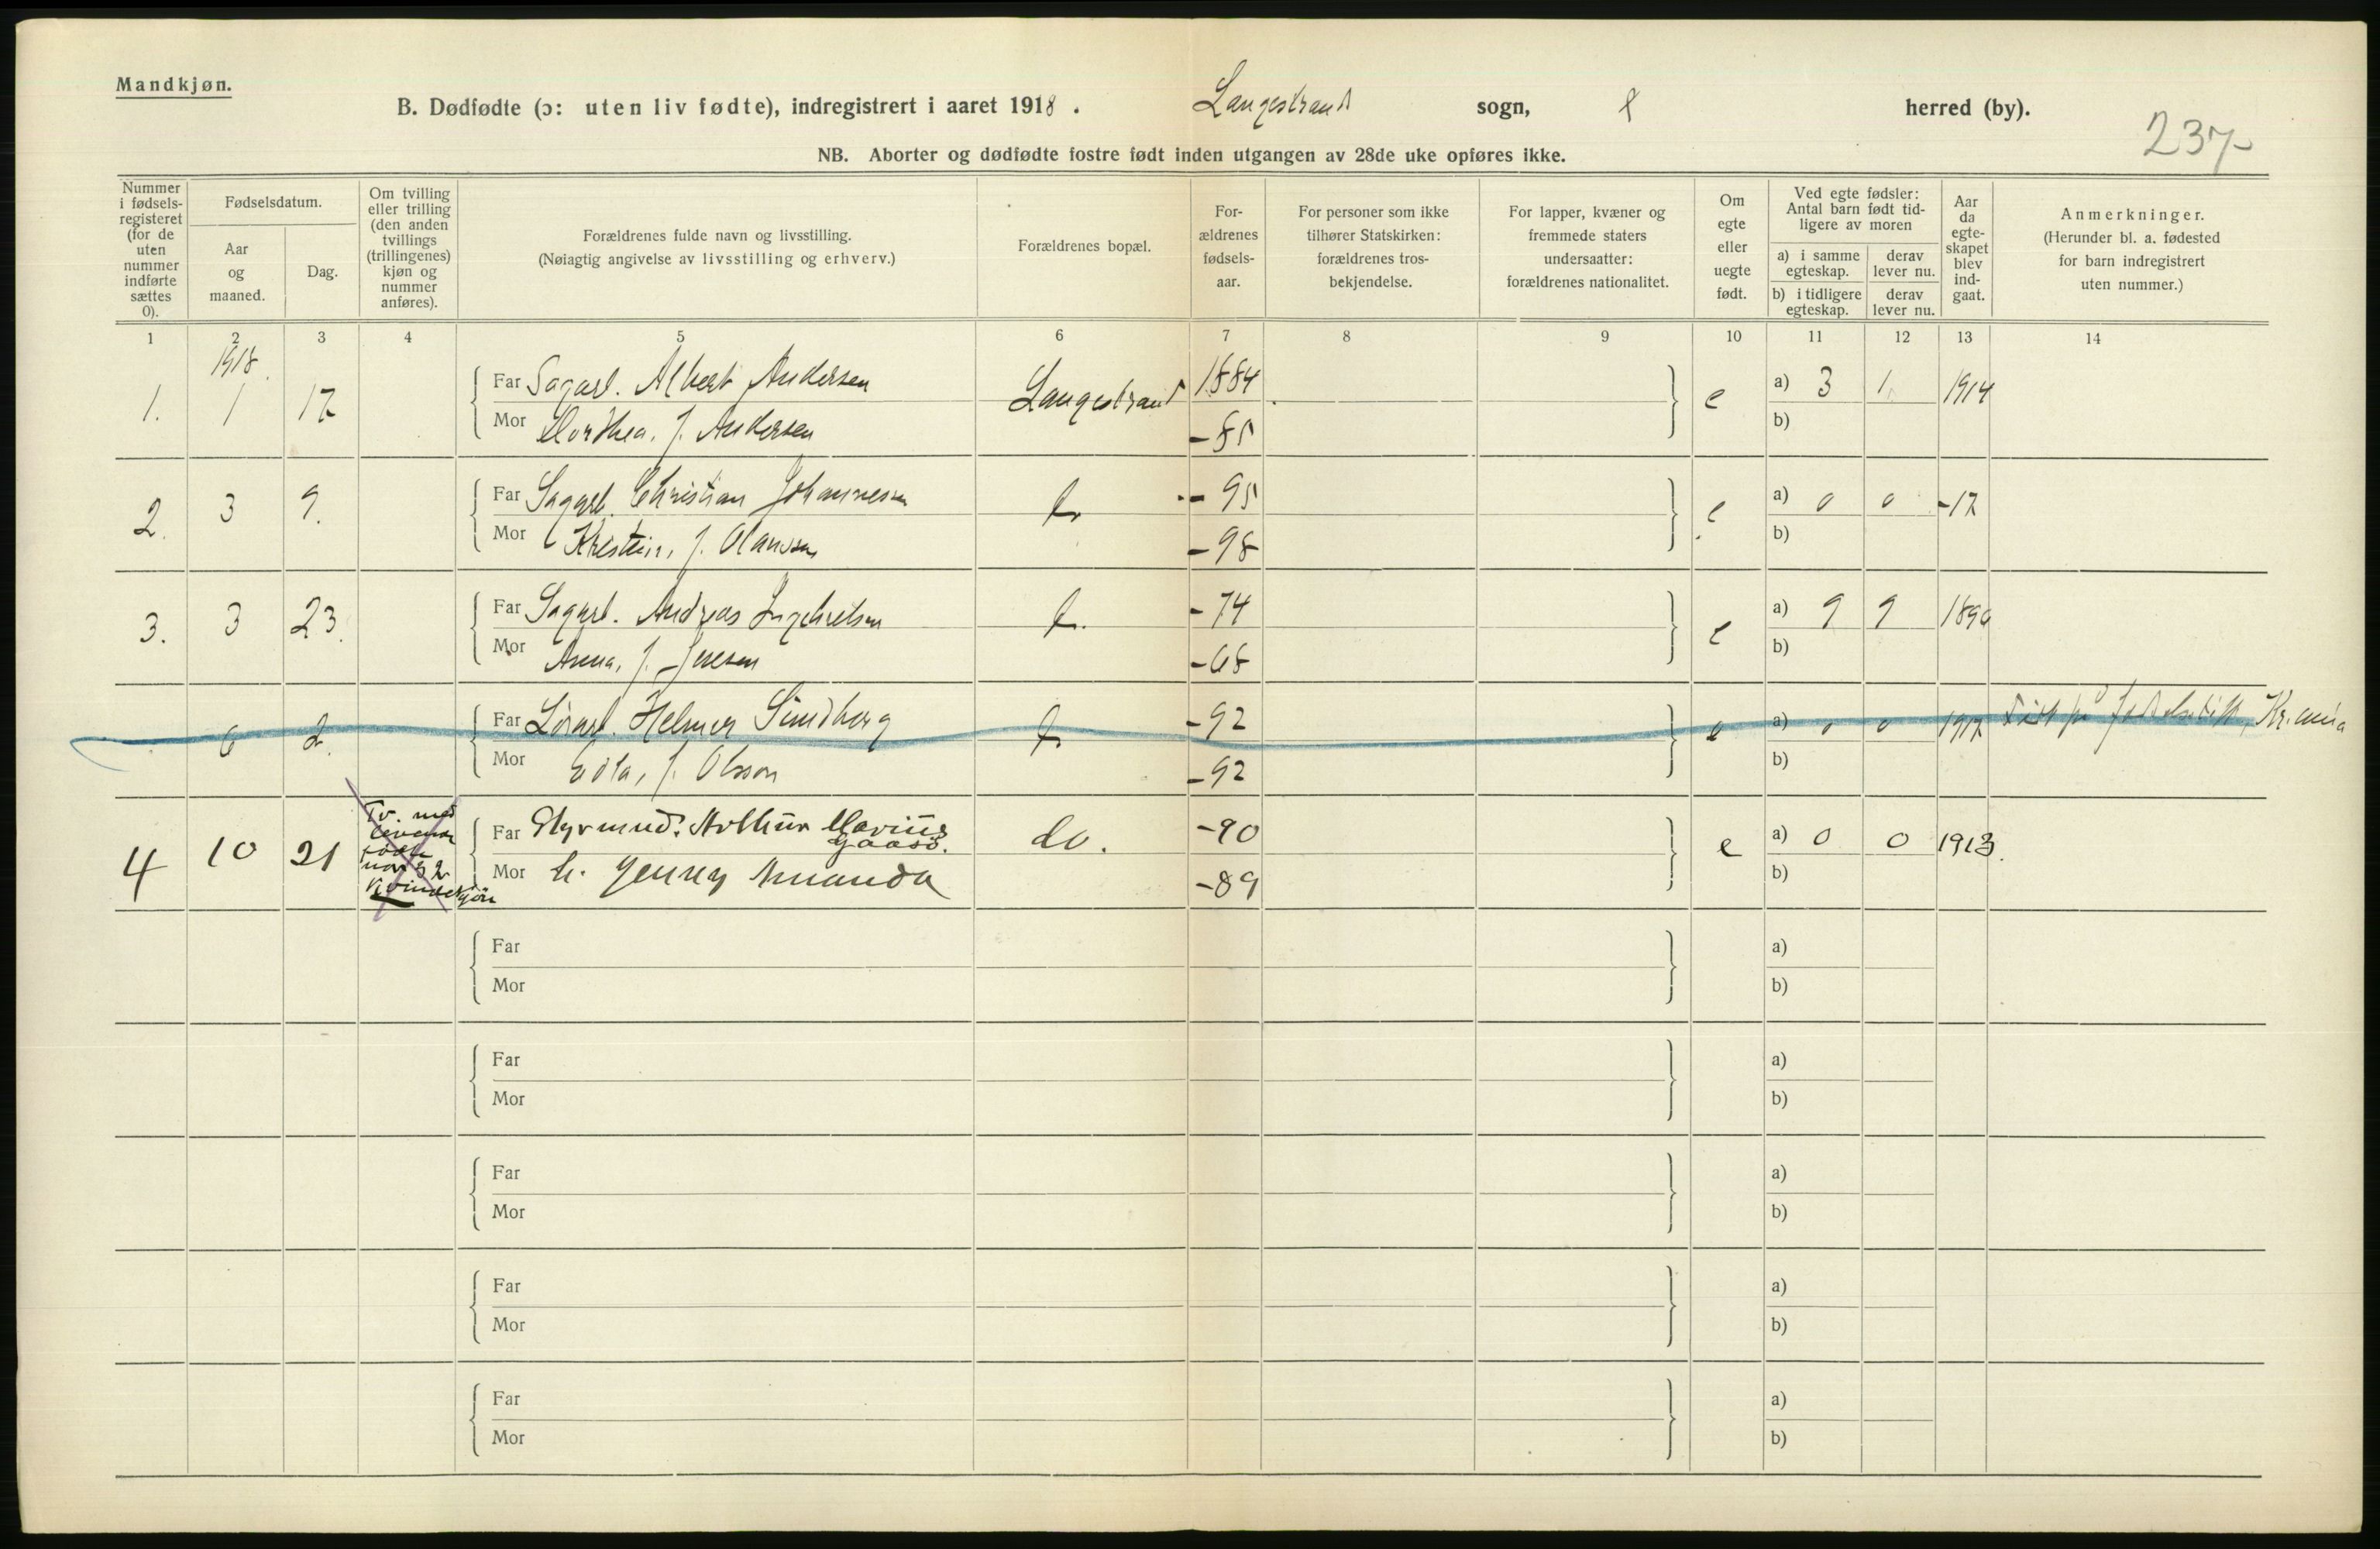 Mandkjøn.
B. Dødfødte (ɔ: uten liv fødte), indregistrert i aaret 1918. Langestrand sogn, herred (by).
237
NB. Aborter og dødfødte fostre født inden utgangen av 28de uke opføres ikke.
Nummer i fødsels-registeret (for de uten nummer indførte sættes 0).
Fødselsdatum.
Aar og maaned.
Dag.
Om tvilling eller trilling (den anden tvillings (trillingenes) kjøn og nummer anføres).
Forældrenes fulde navn og livsstilling.
(Nøiagtig angivelse av livsstilling og erhverv.)
Forældrenes bopæl.
For-ældrenes fødsels-aar.
For personer som ikke tilhører Statskirken: forældrenes tros-bekjendelse.
For lapper, kvæner og fremmede staters undersaatter: forældrenes nationalitet.
Om egte eller uegte født.
Ved egte fødsler: Antal barn født tid-ligere av moren
a) i samme egteskap.
derav lever nu.
b) i tidligere egteskap.
derav lever nu.
Aar da egte-skapet blev ind-gaat.
Anmerkninger.
(Herunder bl. a. fødested for barn indregistrert uten nummer.)
1 2 3 4 5 6 7 8 9 10 11 12 13 14
1918.
1. 1 17 Far Sagarb. Albert Andersen Langestrand 1884 e a) 3 1 1914
Mor Dorthea, f. Andersen -85 b)
2. 3 9. Far Sagarb. Christian Johannesen -95 e a) 0 0 -17
Mor Kristin, f. Olaussen -98 b)
3. 3 23. Far Sagarb. Andreas Ingebretsen -74 e a) 9 9 1890
Mor Anna, f. Jensen -68 b)
6 2. Far Helmer Sundberg -92 e a) 0 0 1917 Født på fødselsstift. Kr.ania
Mor f. Olsson -92 b)
4 10 21 Tv. med levende født nor 32 Kvindekjøn Far Styrmand. Arthur Marius Gaasø. do. -90 e a) 0 0 1913.
Mor h. Jenny Amanda -89 b)
Far a)
Mor b)
Far a)
Mor b)
Far a)
Mor b)
Far a)
Mor b)
Far a)
Mor b)